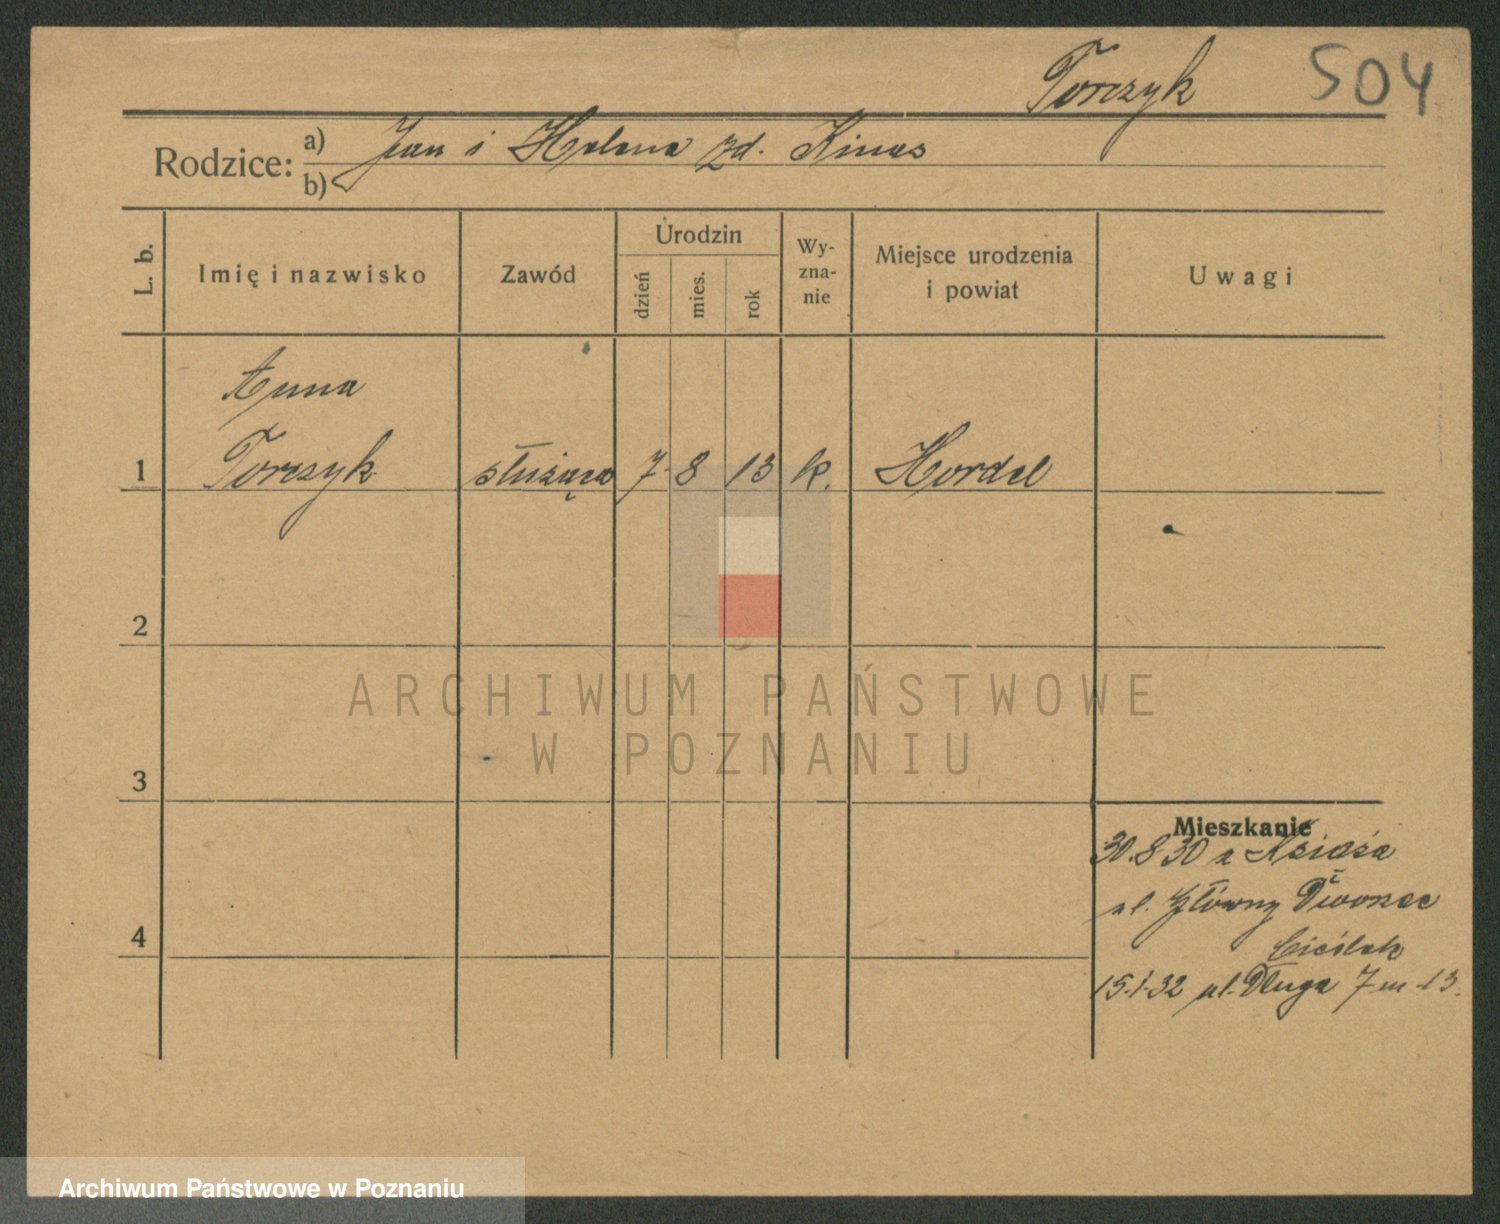 Torczyk
504
Rodzice: a) Jan i Helena zd. Kinas
b)
L. b.
Imię i nazwisko
Zawód
Urodzin
dzień
mies.
rok
Wy-
zna-
nie
Miejsce urodzenia
i powiat
Uwagi
Anna
1 Torczyk służąca 7. 8 13 k. Hordel
2
3
4
Mieszkanie
30.8 30 z Książa
ul. Główny Dworzec
Cieślak
15.1.32 ul. Długa 7 m. 13.
ARCHIWUM PAŃSTWOWE
W POZNANIU
Archiwum Państwowe w Poznaniu